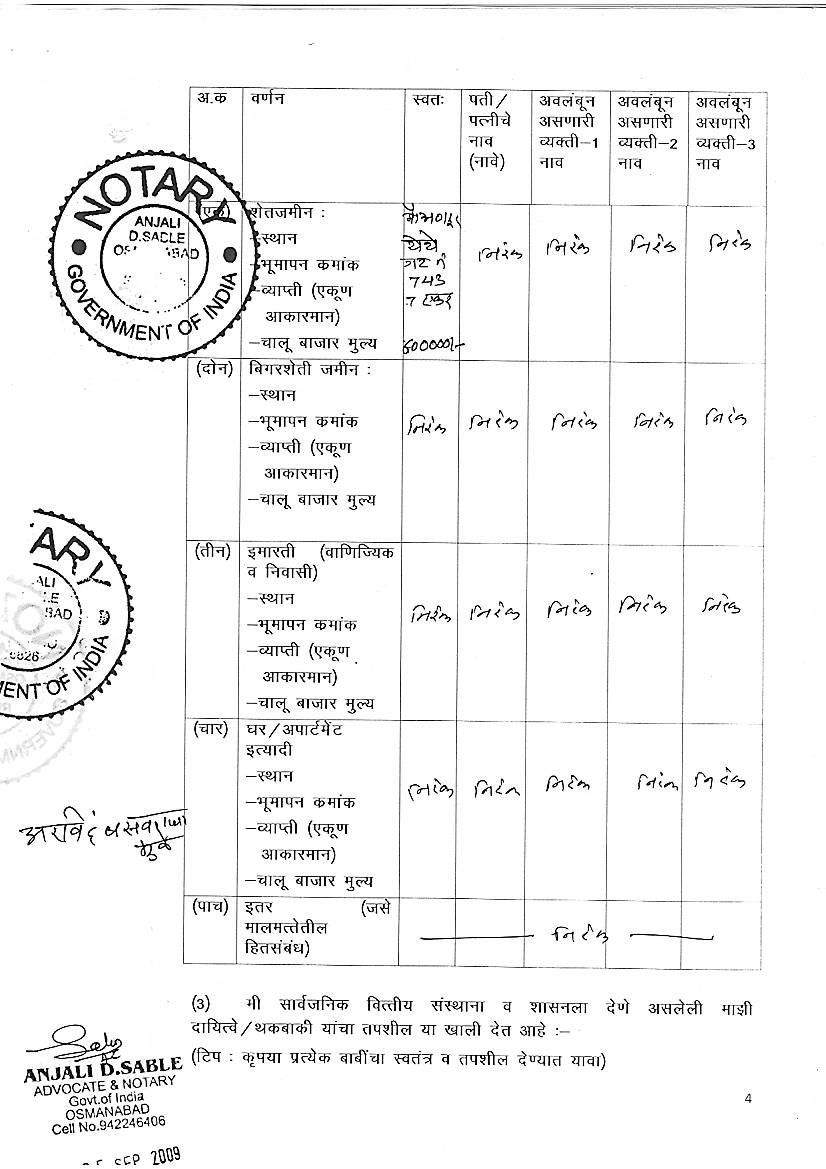 अ.क वर्णन स्वतः पती/ पत्नीचे नाव (नावे) अवलंबून असणारी व्यक्ती–1 नाव अवलंबून असणारी व्यक्ती–2 नाव अवलंबून असणारी व्यक्ती–3 नाव
NOTARY
ANJALI
D.SABLE
GOVERNMENT OF INDIA
(एक) शेतजमीन :
–स्थान येथे निरंक निरंक निरंक निरंक
–भूमापन कमांक गट नं
743
–व्याप्ती (एकूण 7 एकर
आकारमान)
–चालू बाजार मुल्य
(दोन) बिगरशेती जमीन :
–स्थान
–भूमापन कमांक निरंक निरंक निरंक निरंक निरंक
–व्याप्ती (एकूण
आकारमान)
–चालू बाजार मुल्य
(तीन) इमारती (वाणिज्यिक
व निवासी)
–स्थान निरंक निरंक निरंक निरंक निरंक
–भूमापन कमांक
–व्याप्ती (एकूण
आकारमान)
–चालू बाजार मुल्य
(चार) घर/अपार्टमेंट
इत्यादी
–स्थान निरंक निरंक निरंक निरंक निरंक
–भूमापन कमांक
–व्याप्ती (एकूण
आकारमान)
–चालू बाजार मुल्य
(पाच) इतर (जसे
मालमत्तेतील निरंक
हितसंबंध)
(3) मी सार्वजनिक वित्तीय संस्थाना व शासनला देणे असलेली माझी
दायित्वे/थकबाकी यांचा तपशील या खाली देत आहे :–
(टिप : कृपया प्रत्येक बाबींचा स्वतंत्र व तपशील देण्यात यावा)
ANJALI D.SABLE
ADVOCATE & NOTARY
Govt.of India
OSMANABAD
Cell No.942246406
SEP 2009
4